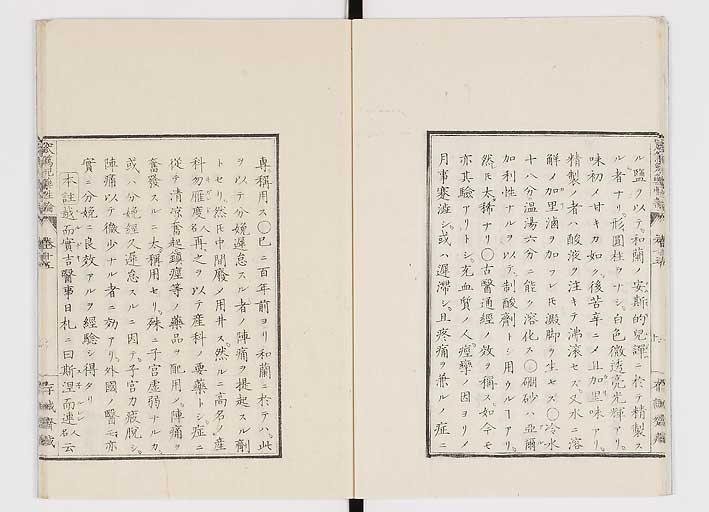 ル鹽ヲ以テ。和蘭ノ安斯的兒譚ニ於テ精製ス
ル者ナリ。形圓柱ヲナシ。白色微透亮光輝アリ。
味初メ甘キカ如ク。後苦辛ニメ且加里味アリ。
精製ノ者ハ酸液ヲ注キテ沸滾セズ。又水ニ溶
解ノ加里滷ヲ加フレヒ澱脚ヲ生セズ○冷水
十八分温湯六分ニ能ク溶化ス○硼砂ハ亞爾
加利性ナルヲ以テ。制酸劑トシ用ウルヿアリ。
然ヒ太稀ナリ○古醫通經ノ效ヲ稱ス。如今モ
亦其驗アリトシ。充血質ノ人痙攣ノ因ヨリノ
月事蹇澁シ。或ハ遲滯シ。且疼痛ヲ兼ルノ症ニ
専稱用ス○已ニ百年前ヨリ和蘭ニ於テハ。此
ヲ以テ分娩遲怠スル者ノ陣痛ヲ提起スル劑
トセリ。然ヒ中間廢ノ用井ス。然ルニ高名ノ産
科勿雁度名人再之ヲ以テ産科ノ要藥トシ。症ニ
從テ清凉奮起鎮痙等ノ藥品ヲ配用ノ。陣痛ヲ
奮發スルニ太稱用セリ。殊ニ子宮虚弱ナルカ。
或ハ分娩經久遲怠スルニ因テ。子宮力疲脱シ。
陣痛以テ微少ナル者ニ効アリ。外國ノ醫モ亦
實ニ分娩ニ良效アルヲ經驗シ得タリ
本註越而實吉醫事日札ニ曰斯涅而連人名云